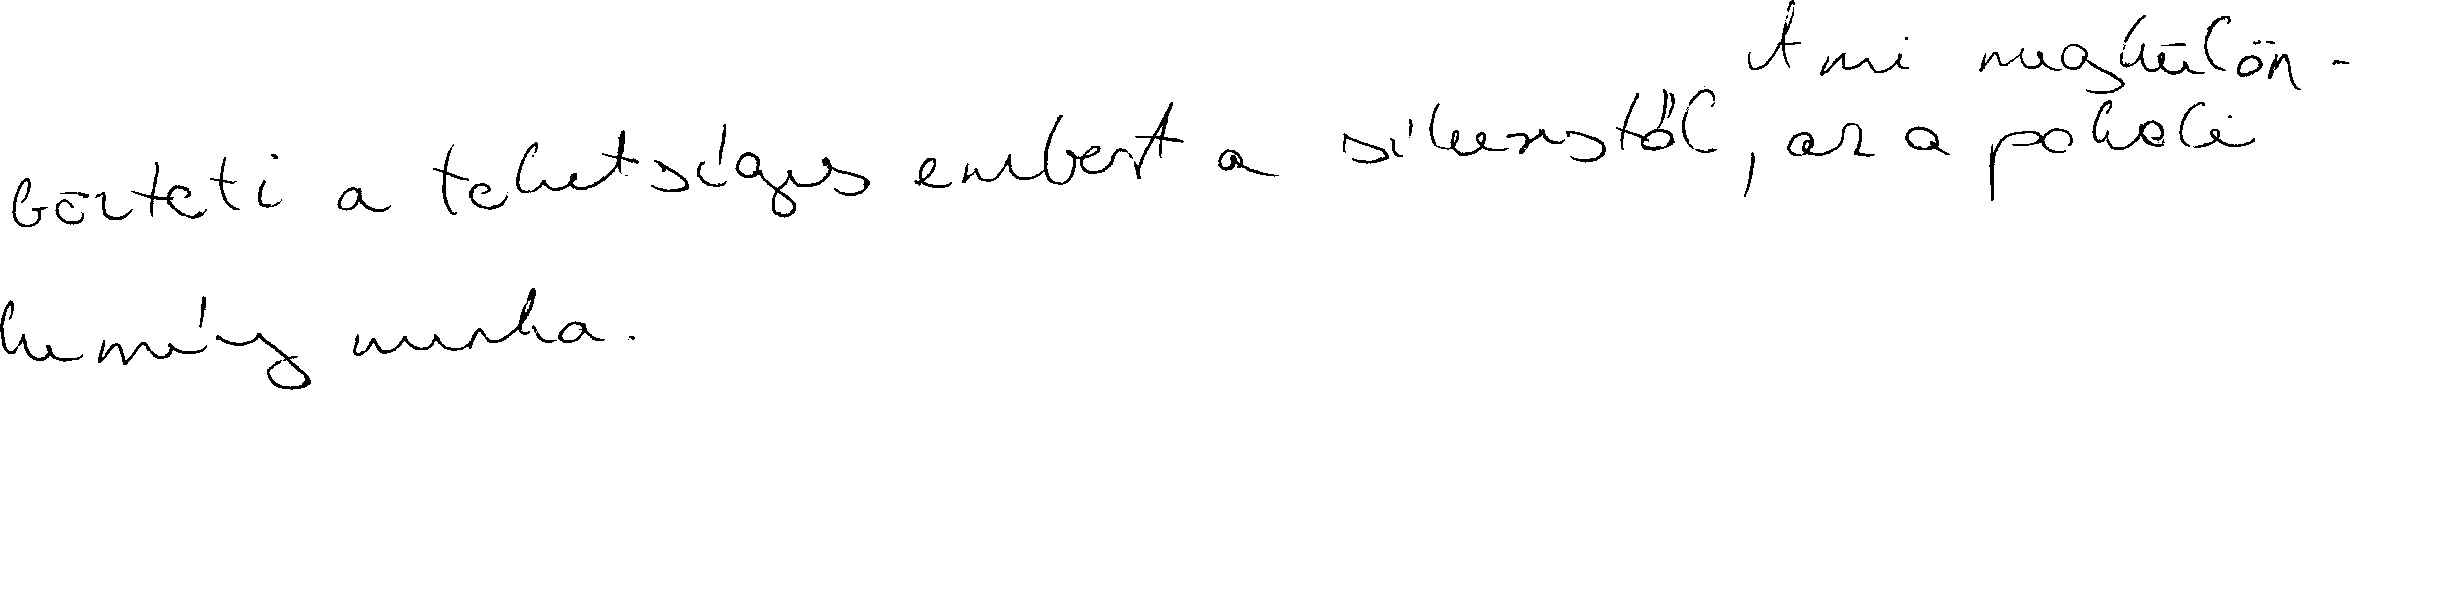 Ami megkülön-
bözteti a tehetséges embert a sikerestől, az a pokoli
kemény munka.